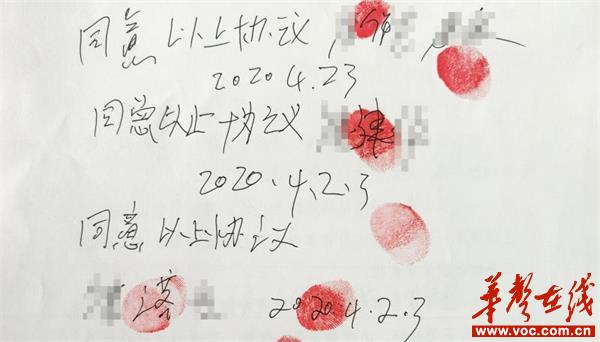 同意以上协议
2020 4.23
同意以上协议
2020.4.2.3
同意以上协议
2020.4.2.3
华声在线
www.voc.com.cn